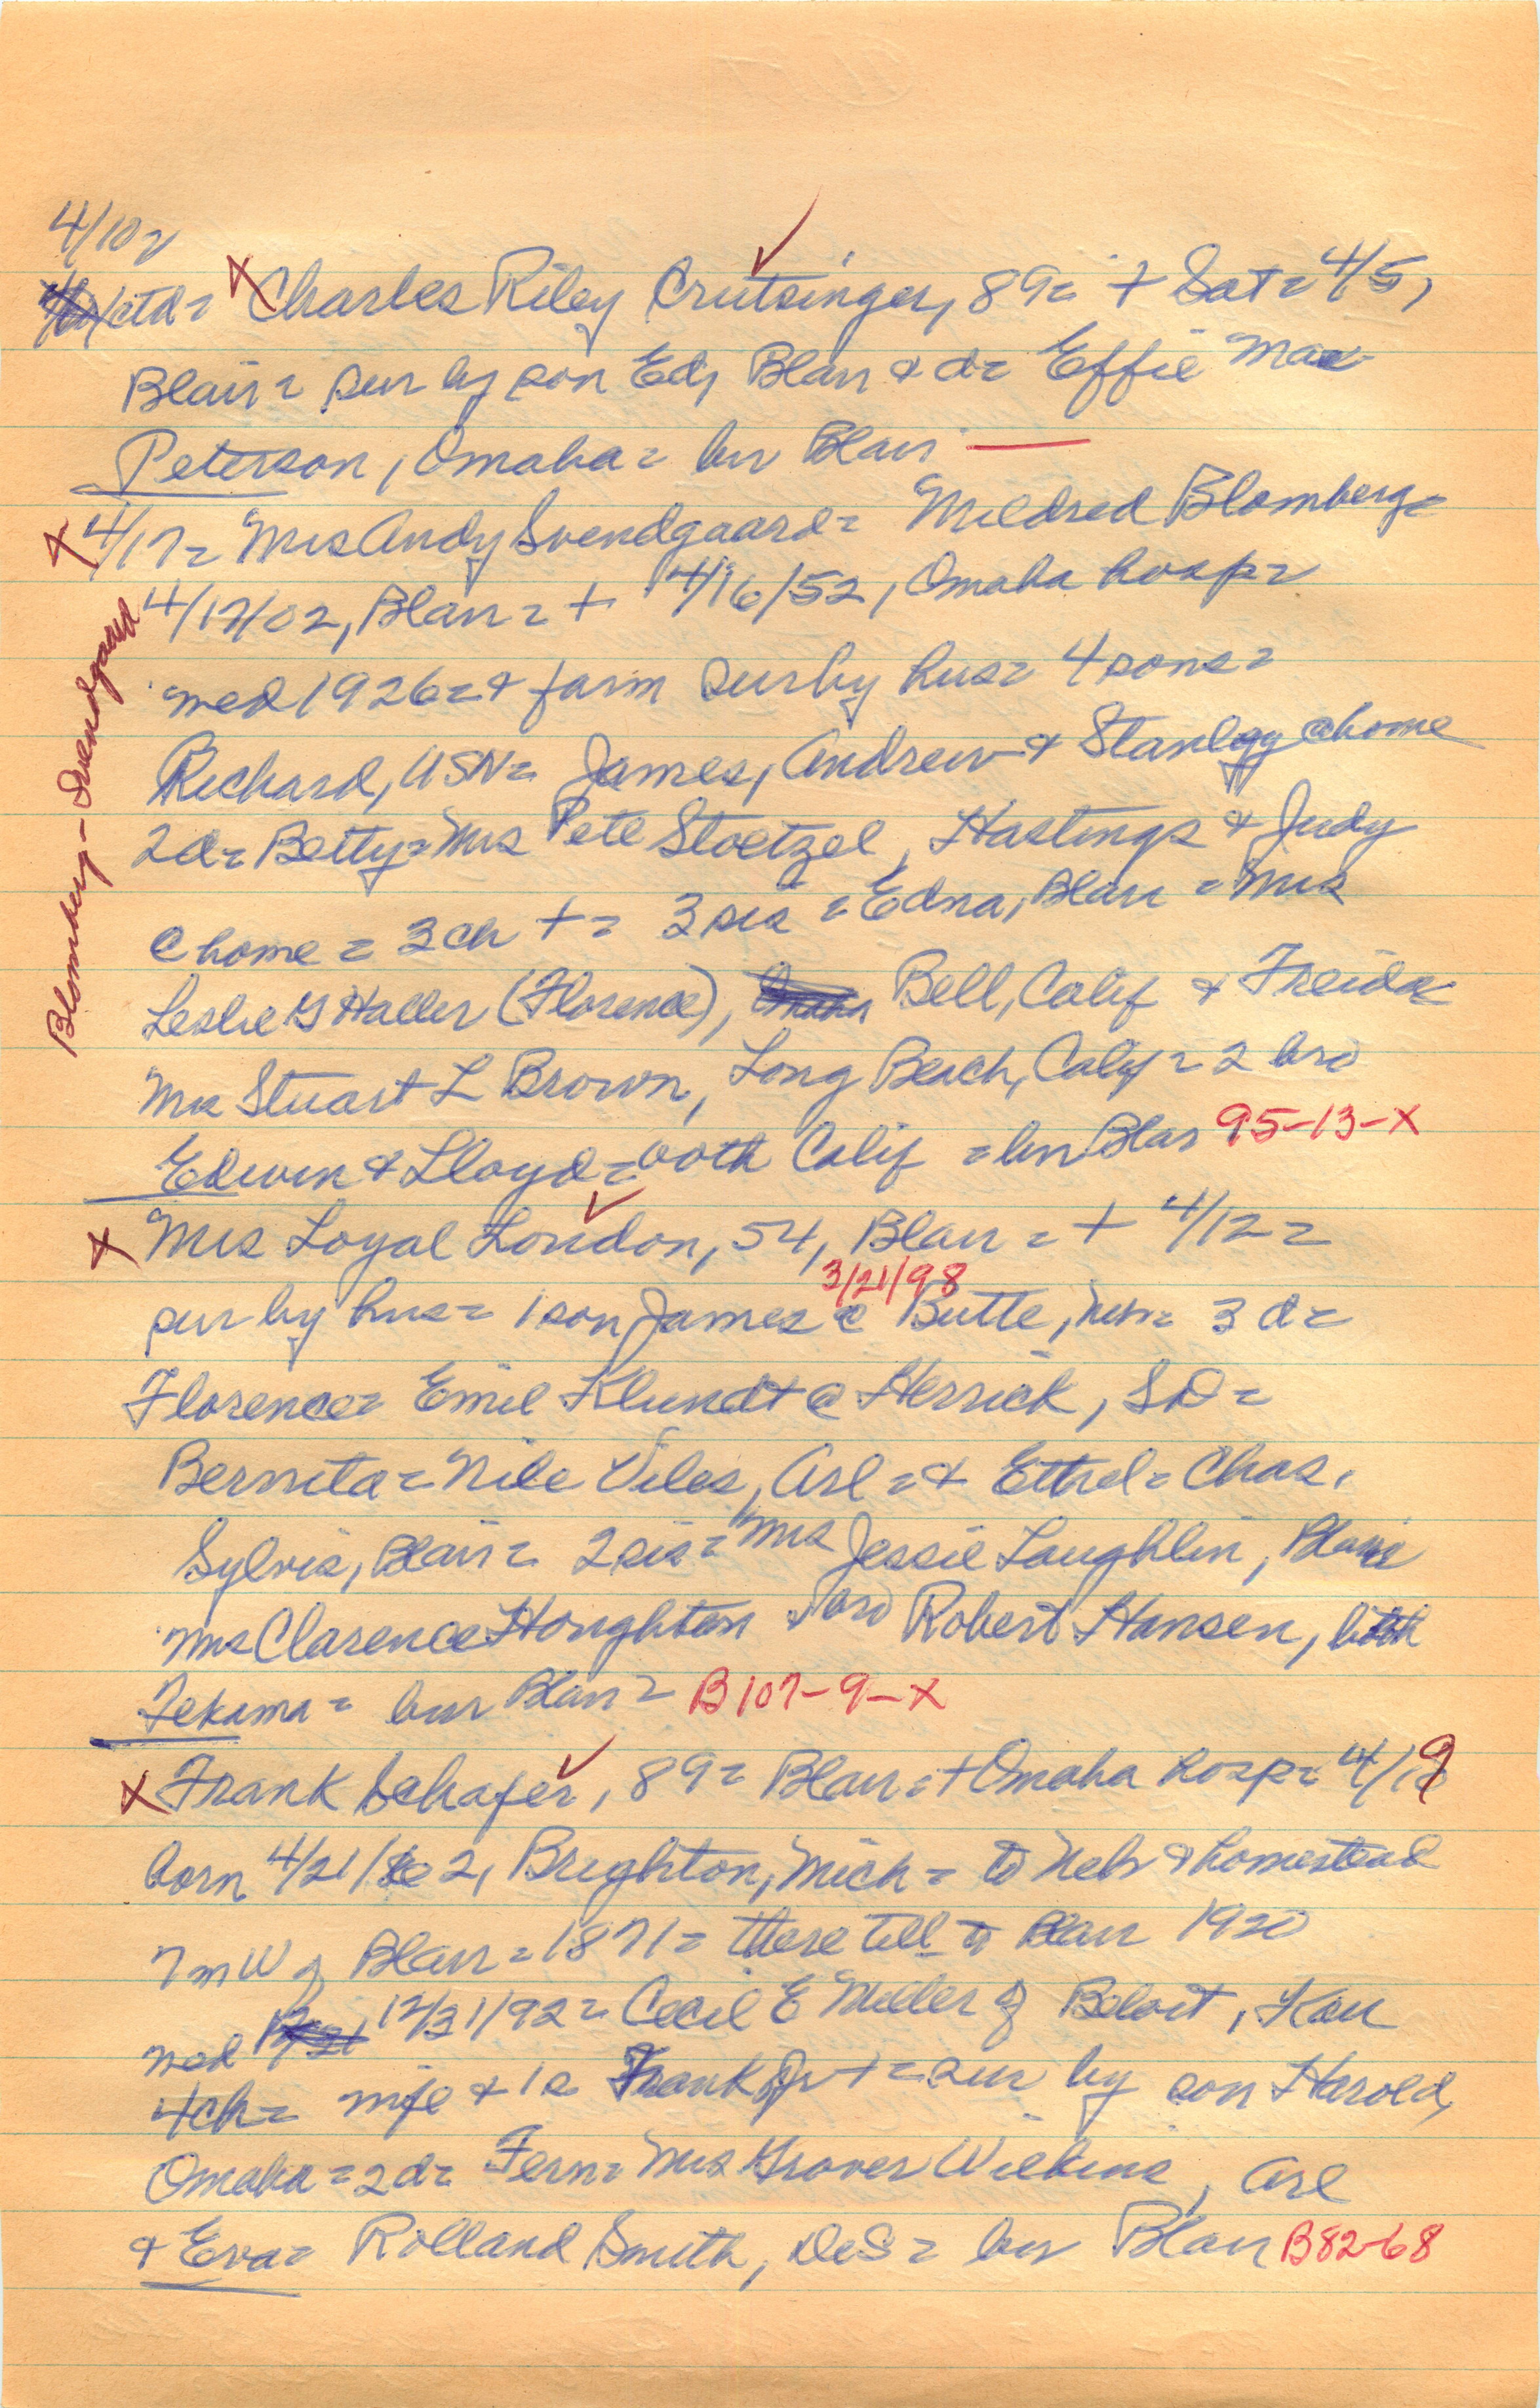 4/10
ctd = x Charles Riley Crutsinger, 89 = + Sat = 4/5,
Blair = sur by son Ed, Blair & d = Effie Mae
Peterson, Omaha = bur Blair —
x 4/17 = Mrs Andy Svendgaard = Mildred Blomberg =
Blomberg - Svendgaard
4/17/02, Blair = + 4/16/52, Omaha hosp =
med 1926 = & farm sur by hus = 4 sons =
Richard, USN = James, Andrew & Stanley @ home
2 d = Betty = Mrs Pete Stoetzel, Hastings & Judy
@ home = 3 ch + = 3 sis = Edna, Blair = Mrs
Leslie G Haller (Florence), Bell, Calif & Freida
Mrs Stuart L Brown, Long Beach, Calif = 2 bro
Edwin & Lloyd = both Calif = bur Blair 95-13-X
x Mrs Loyal London, 54, Blair = + 4/12 =
3/21/98
sur by hus = 1 son James @ Butte, Neb = 3 d =
Florence = Emil Klundt @ Herrick, SD =
Bernita = Nile Viles, Arl = & Ethel = Chas.
Sylvis, Blair = 2 sis = Mrs Jessie Laughlin, Blair
Mrs Clarence Houghton & bro Robert Hansen, both
Tekama = bur Blair = B107-9-X
x Frank Schafer, 89 = Blair = + Omaha hosp = 4/19
born 4/21/62, Brighton, Mich = to Neb & homestead
7 m W of Blair = 1871 = there till to Blair 1920
med 12/31/92 = Cecil E Miller of Beloit, Kan
4 ch = wife & 1 s Frank Jr + = sur by son Harold,
Omaha = 2 d = Fern = Mrs Grover Wilkins, Arl
& Eva = Rolland Smith, DeS = bur Blair B82-68